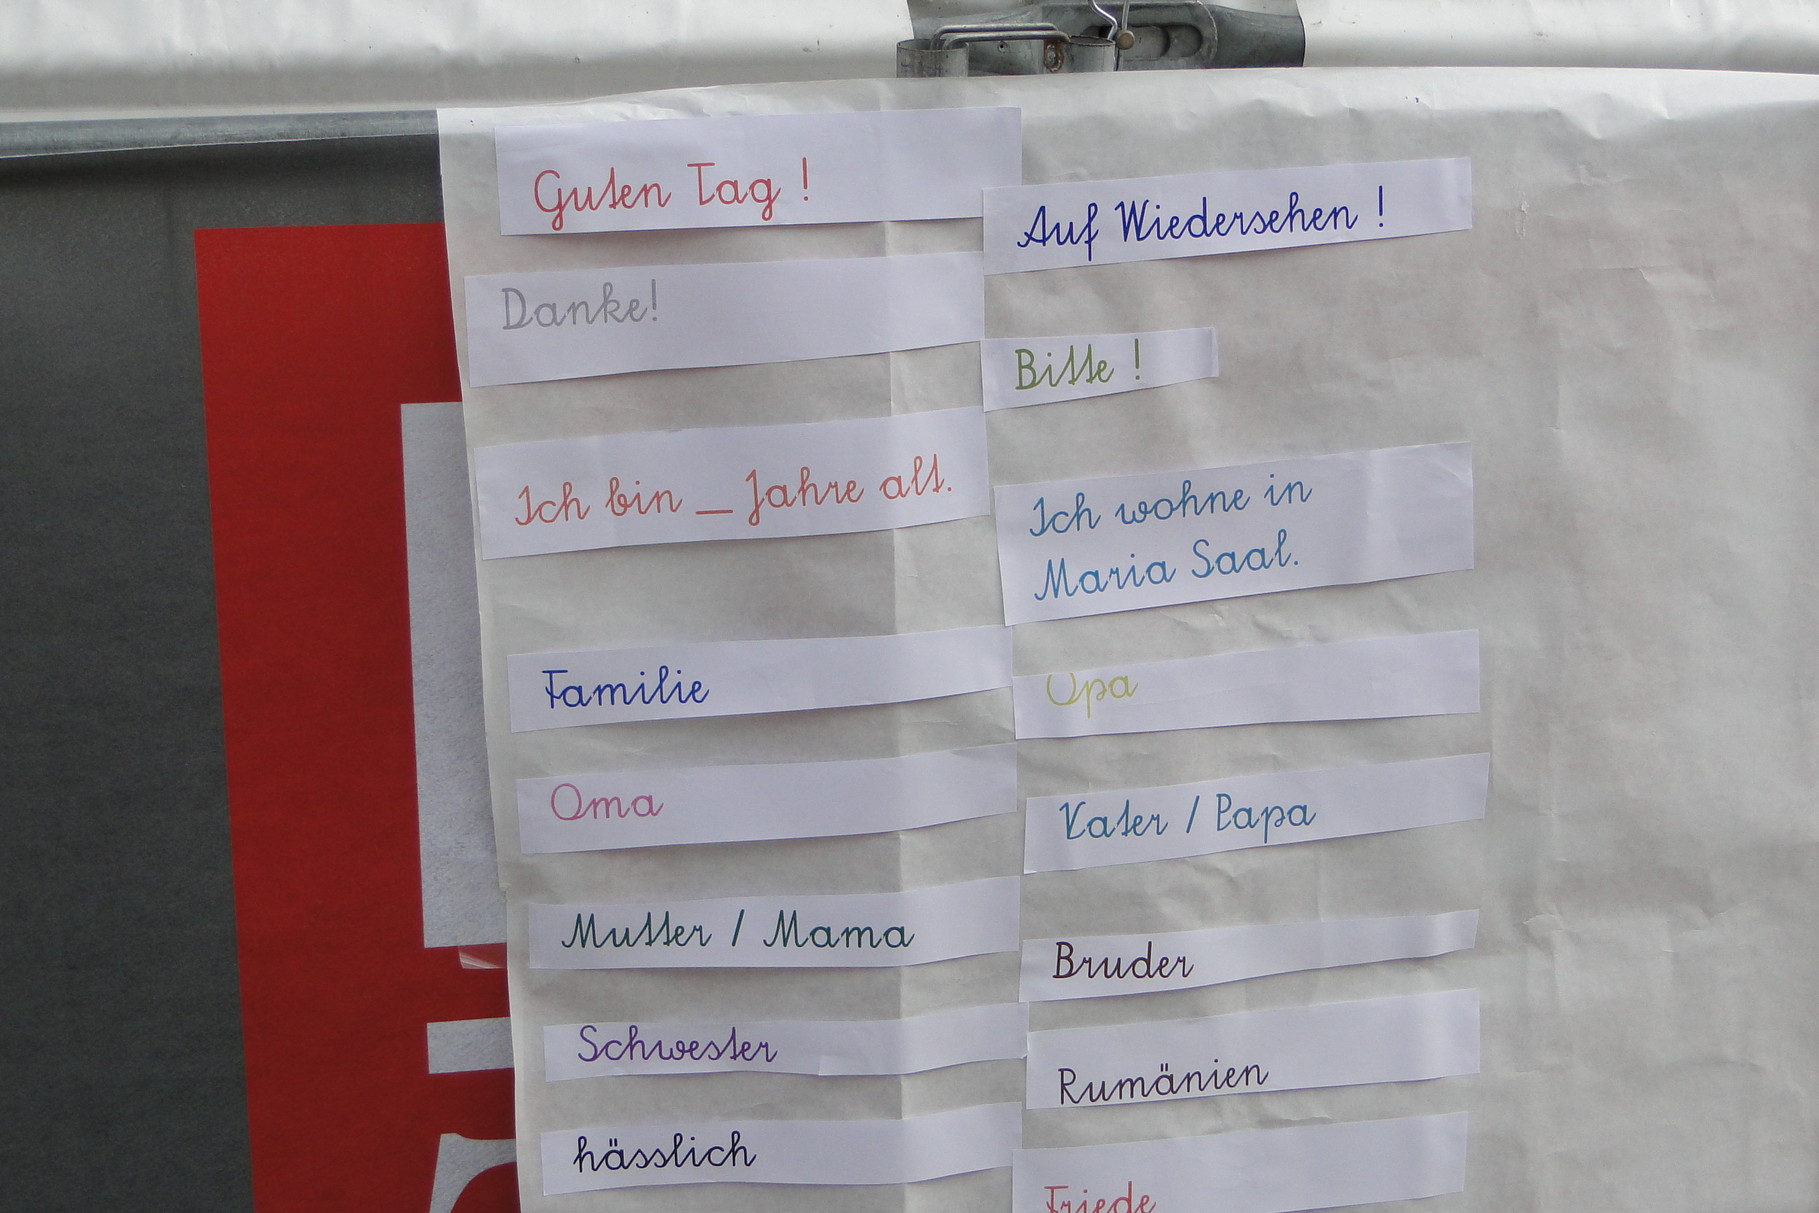 Guten Tag !
Auf Wiedersehen !
Danke!
Bitte !
Ich bin _ Jahre alt.
Ich wohne in
Maria Saal.
Familie
Opa
Oma
Vater / Papa
Mutter / Mama
Bruder
Schwester
Rumänien
hässlich
Friede